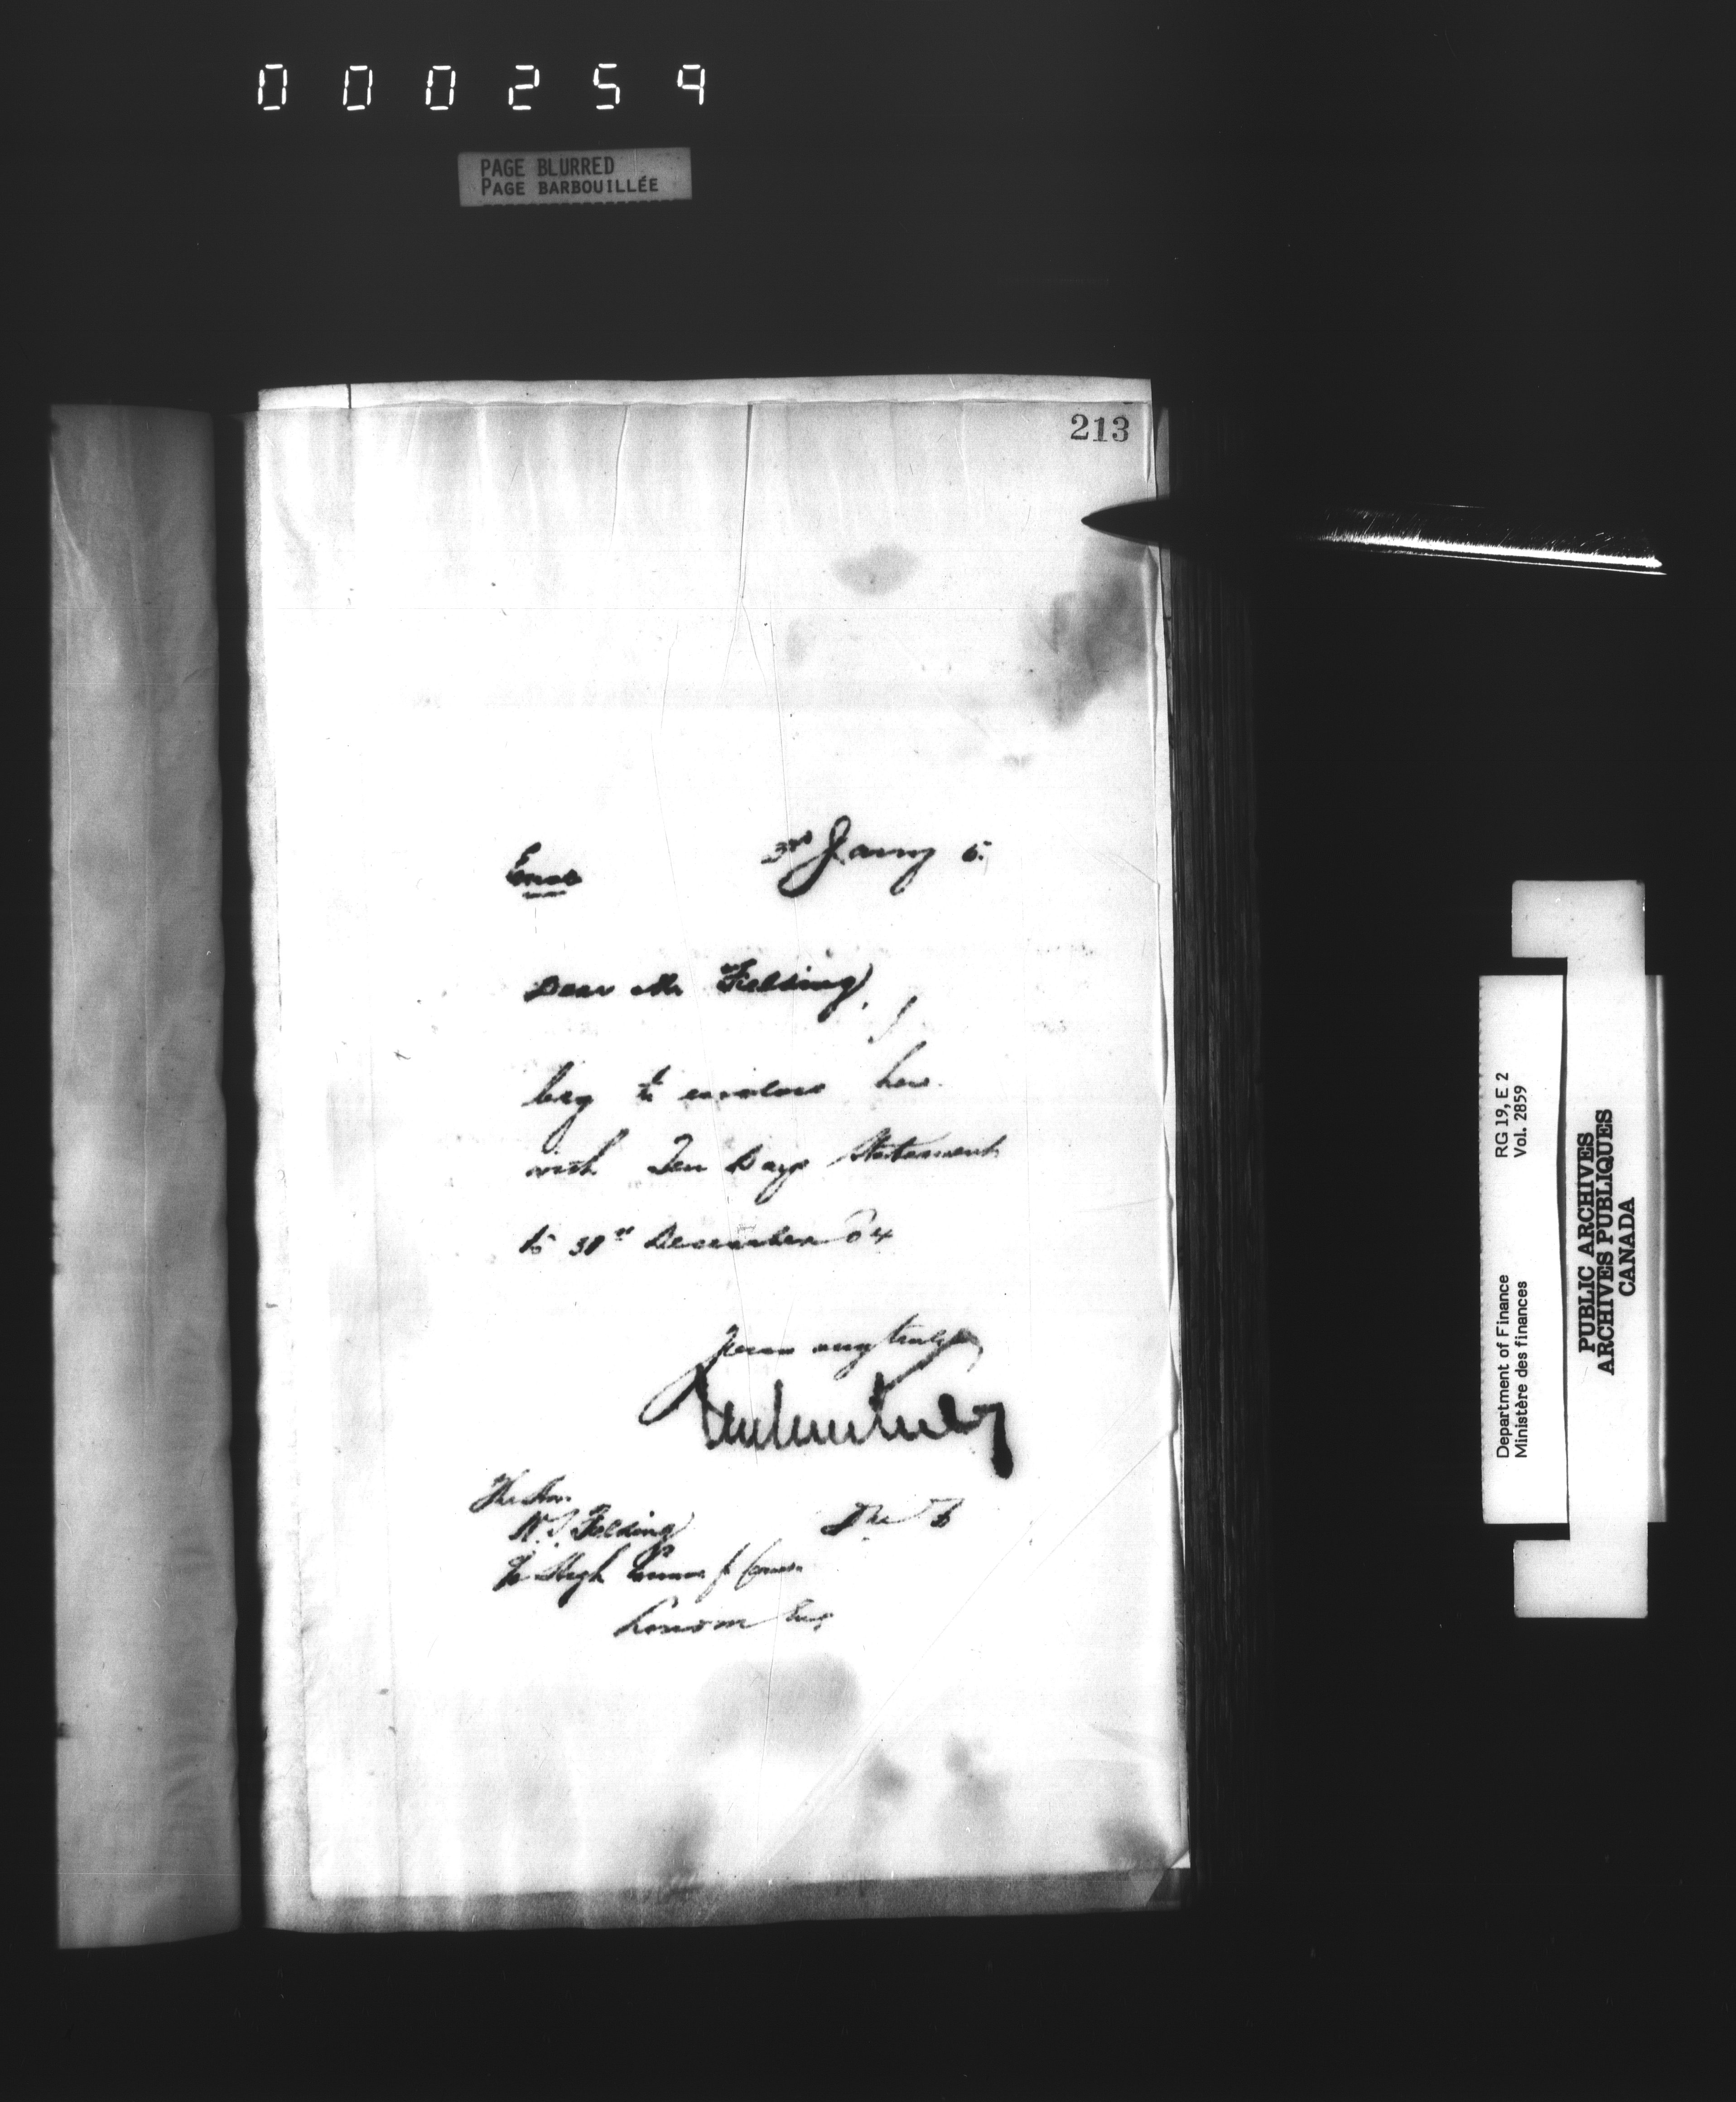 000259
PAGE BLURRED
PAGE BARBOUILLÉE
213
Encs
3rd Jany 5.
Dear Mr Fielding,
I
beg to enclose here-
with Ten Days Statement
to 31st December 04
Yours very truly
The Hon.
W. S. Fielding
c/o High Commr f Canada
London Eng
RG 19, E 2
Vol. 2859
Department of Finance
Ministère des finances
PUBLIC ARCHIVES
ARCHIVES PUBLIQUES
CANADA